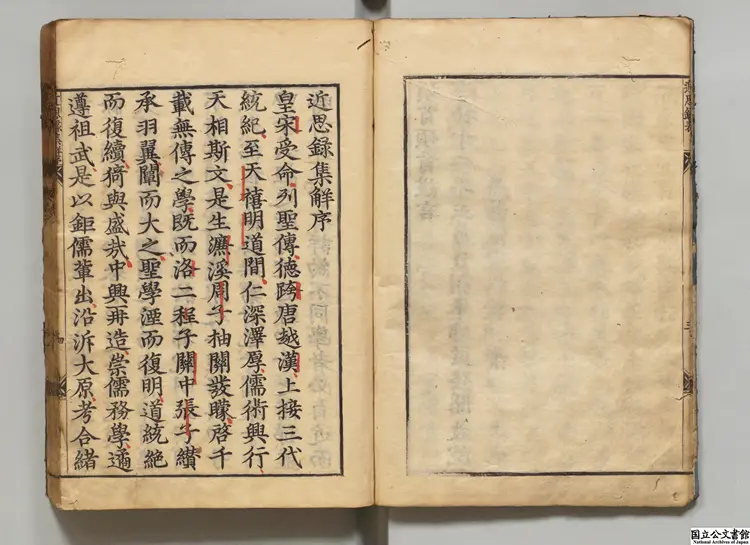 近思録集解序
皇宋受命列聖傳德跨唐越漢上接三代
統紀至天禧明道間仁深澤厚儒術興行
天相斯文是生濂溪周子抽關發矇啓千
載無傳之學既而洛二程子關中張子纘
承羽翼闡而大之聖學湮而復明道統絶
而復續猗與盛㢤中興再造崇儒務學遹
遵祖武是以鉅儒輩出沿泝大原考合緒
国立公文書館
National Archives of Japan